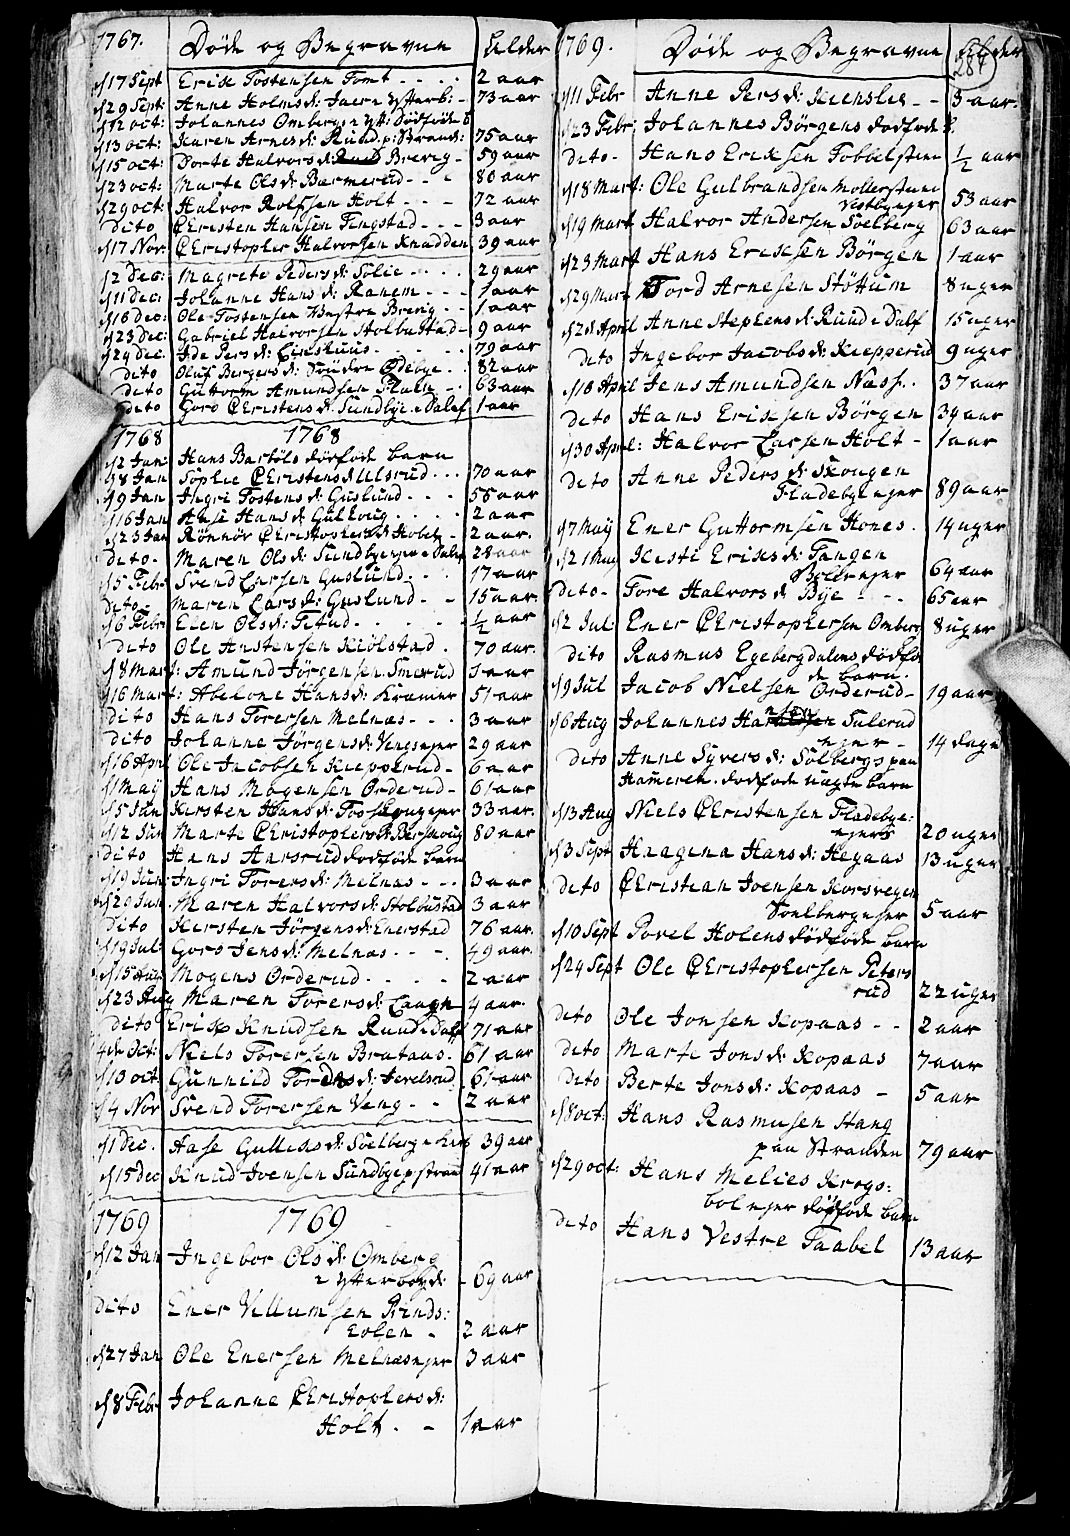 1767. Døde og Begravne Alder
d 17 Sept Erik Tostensen Tomt - - - - 2 aar
d 29 Sept: Anne Holmsd: Jaer e Ytterb: - 73 aar
d 12 oct: Johannes Omberg e Ytt: Dødfød b
d 13 oct: Karen Arnesd: Ruud p: Strand: 75 aar
d 15 oct: Dorte Halvorsd: Brevig - 59 aar
d 23 oct: Marte Olsd: Bærmerud - - - 80 aar
d 29 oct: Halvor Rolfsen Holt - - - 72 aar
dito Christen Hansen Tingstad - - - 3 aar
d 17 Nov Christopher Halvorsen Knudden 39 aar
d 2 Dec: Magrete Pedersd: Solie - - - - 29 aar
d 11 Dec: Johanne Hansd: Ranem - - - 1 aar
d 16 Dec: Ole Tostensen Westre Brevig - - 1 aar
d 23 Dec: Gabriel Halvorsen Stolbustad - 9 aar
d 24 Dec. Ide Persd: - - - - 79 aar
dito Oluf Bergersd: Søndre Ødebye - : 82 aar
dito Guttorm Amundsen - - 63 aar
dito Goro Christensd: Sundbye e Dalef 1 aar
1768 1768
d 2 Jan: Hans Bartols dødføde barn
d 8 Jan Sophie Christensd: Ulsrud - - - 70 aar
d 9 Jan Ingri Tostensd: Guslund - - - 56 aar
d 16 Jan Anse Hansd: Gulhoug - - - - 2 aar
d 23 Jan Rønnør Christophersd: Holt - 2 aar.
dito - Maren Olsd: Sundbyejer e Dalef 28 aar
d 5 Febr Svend Larsen Guslund - - - 17 aar
dito - Maren Larsd: Guslund - - 15 aar.
d 6 Febr Elen Olsd: Fetud - - - - - ½ aar
dito Ole Anstensen Kiølstad - 70 aar.
d 8 Mart: Amund Jørgensen Smerud 3 aar
d 16 Mart: Abelone Hansd: Kramer 51 aar
dito Hans Torersen Melnæs - - - 3 aar
dito Johanne Jørgensd: Vengsejer 29 aar
d 16 April Ole Jacobsen Kiepperud - 6 aar
d 1 May Hans Mogensen Orderud - 61 aar
d 5 Jun Kirsten Hansd: Fossbyejer 33 aar.
d 12 Jun Marte Christophersd: Berhoug 80 aar
dito Hans Aarsrud dødføde barn
d 19 Jun: Ingri Torersd: Melnæs - - - 3 aar
d 29 Jun: Maren Halvorsd: Stolbustad 3 aar
dito Kirsten Jørgensd: Enerstad 76 aar.
d 19 Jul: Goro Jensd: Melnæs - - - 49 aar.
d 15 Aug Mogens Orderud - - - - 2 aar
d 23 Aug Maren Torersd: Laagn 4 aar.
dito Erik Knudsen Ruud e Dalf 71 aar
4de Oct: Niels Torersen Brataas - 61 aar
d 10 oct Gunnild Tordsd: Jevelsrud 61 aar
d 4 Nov Svend Torersen Veng - - 2 aar
d 1 Dec. Aase Gulliksd: Soelberg e 39 aar
d 15 Dec Knud Joensen Sundbye p: Strand 41 aar
1769 1769
d 12 Jan Ingebor Olsd: Omberg
e Ytterbøyd: - 69 aar
Dito Ener Villumsen Rinds:
Eolen - 2 aar
d 27 Jan Ole Enersen Melnæsejer 3 aar
d 8 Febr Johanne Christophersd:
Holt - - 1 aar
1769. Døde og Begravne Alder
287
d 11 Febr Anne Persd: Kiensley - - 3 aar.
d 23 Febr: Johannes Børgens dødføde b.
dito - Hans Eriksen Tobbelsteen ½ aar
d 18 Mart: Ole Gulbrandsen Mollersteen
Vestbyejer 53 aar
d 19 Mart Halvor Andersen Soelberg 63 aar
d 23 Mart Hans Eriksen Børgen 1 aar
d 29 Mart Tord Arnesen Støttum 8 uger
d 2d April Anne Stephensd: Ruud e Dalf 15 uger
dito Ingebor Jacobsd: Kiepperud 9 uger
d 10 April Jens Amundsen Næss - 37 aar
dito Hans Eriksen Børgen 34 aar
d 30 April: Halvor Larsen Holt - 1 aar
dito Anne Pedersd: Skougen
Fladebyeejer 89 aar
d 7 May Ener Guttormsen Hones - 14 uger
d 21 May Kisti Eriksd: Tangen
Bollerejer 64 aar
dito - Tore Halvorsd: Bye - - - 65 aar
d 2 Jul: Ener Christophersen Omberg 8 uger
dito Rasmus Egebergdalens dødfø
de barn.
d 9 Jul Jacob Nielsen Orderud - 19 aar
d 6 Aug Johannes Hansen Tulerud
ejer - 14 dage
dito Anne Syversd: Solbergs paa
Hameren. dødføde uægte barn
d 13 Aug Niels Christensen Fladebye:
ejers 20 uger
d 3 Sept Haagena Hansd: Hegaas 13 uger
dito Christian Joensen Korsvegen
Soelbergejer 5 aar
d 10 Sept Povel Holens dødføde barn
d 24 Sept Ole Christophersen Peters
rud 22 uger
dito Ole Jonsen Kopaas - - 2 aar
dito Marte Jonsd: Kopaas 7 aar
dito Berte Jonsd: Kopaas - 5 aar
d 8 oct: Hans Rasmusen Stang
paa Stranden 79 aar
d 29 oct: Hans Melies Krogs:
bolejer dødføde barn
dito Hans Vestre Taabel 13 aar